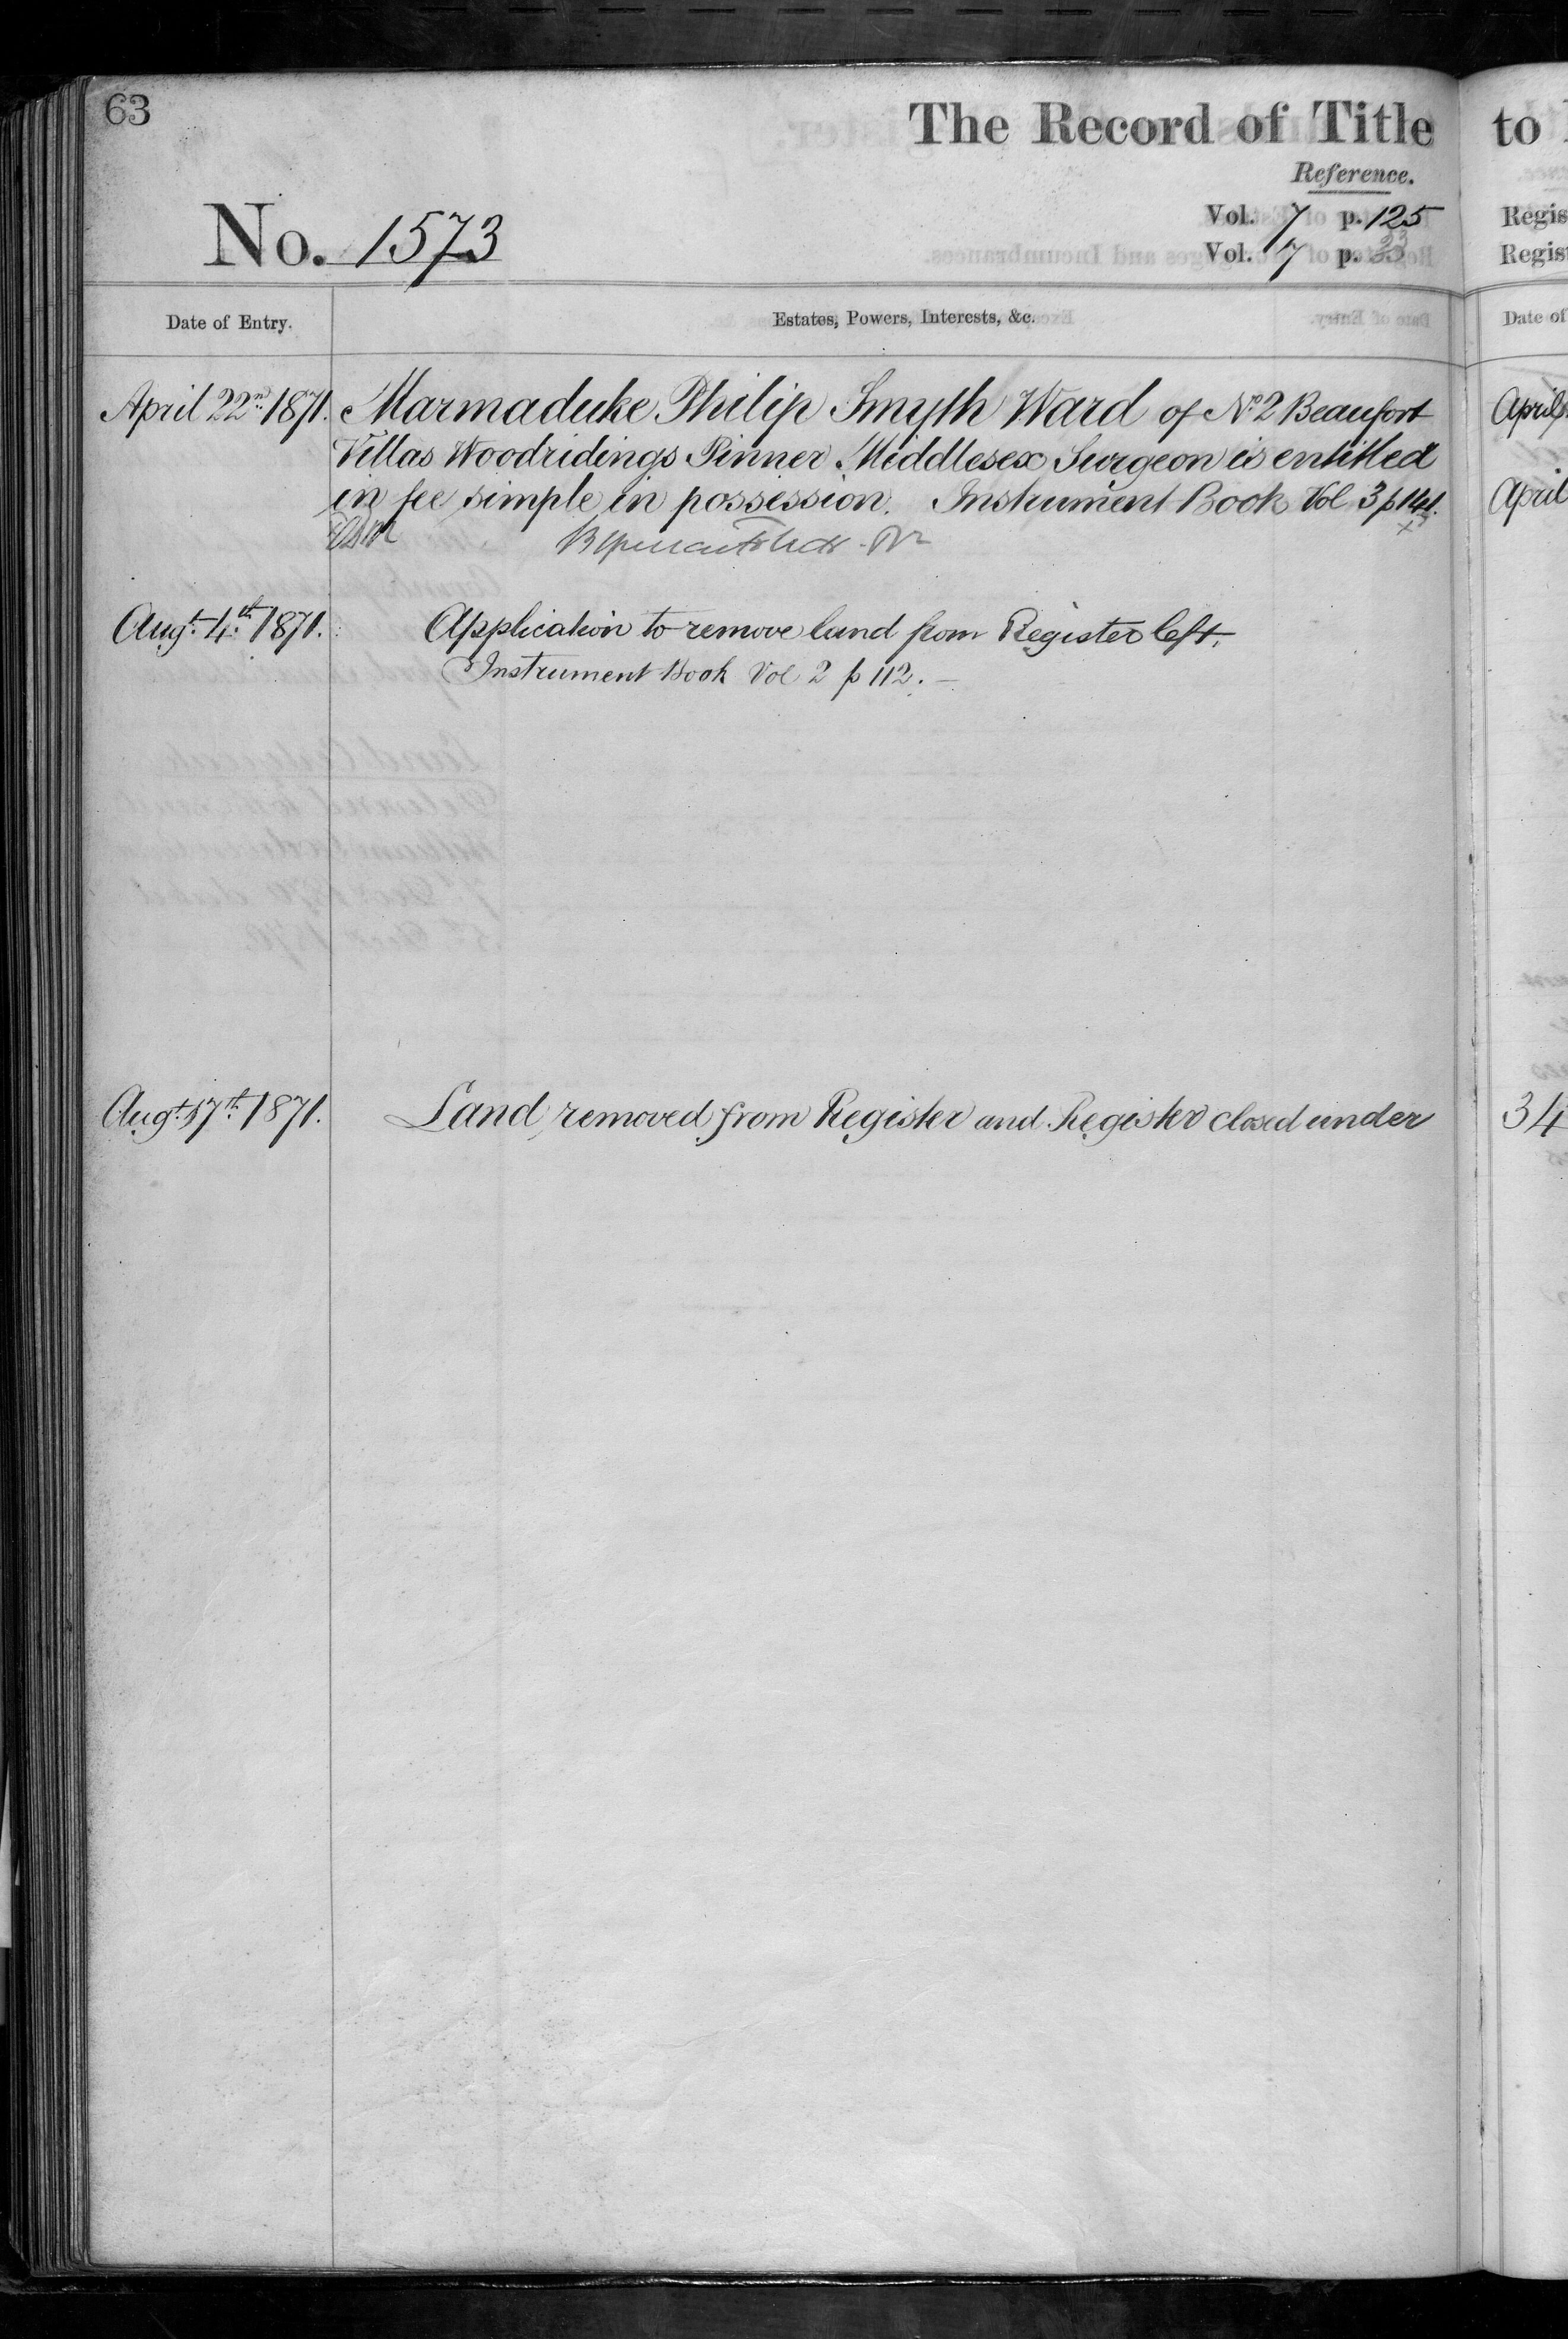 63
The Record of Title
Reference.
No. 1573
Vol. 7 p. 125
Vol. 7 p.
Date of Entry.
Estates, Powers, Interests, &c.
April 22nd 1871. Marmaduke Philip Smyth Ward of No 2 Beaufort
Villas Woodridings Pinner Middlesex Surgeon is entitled
in fee simple in possession. Instrument Book Vol 3 p 141.
Augt. 4th 1871. Application to remove land from Register left.
Instrument Book Vol 2 p 112.
Augt. 17th 1871. Land removed from Register and Register closed under
to
Regis
Regis
Date of
April
April
34